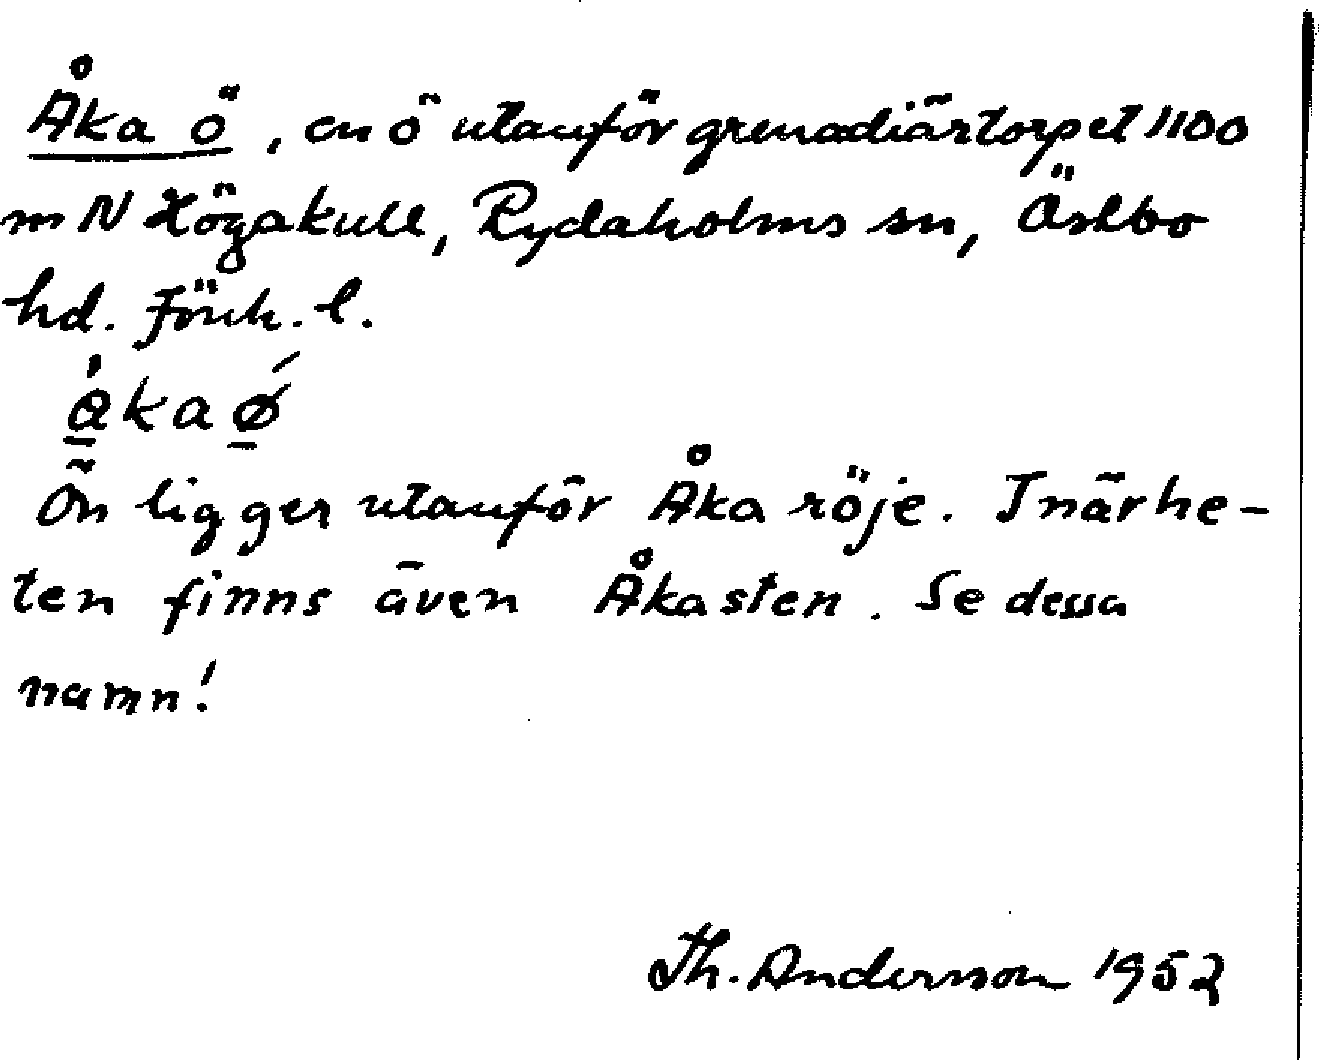 Åka ö, en ö utanför grenadiärtorpet 1100
m N Högakull, Rydaholms sn, Östbo
hd. Jönk. l.
åkaø
Ön ligger utanför Åka röje. I närhe-
ten finns även Åkasten. Se dessa
namn!
Th. Andersson 1952